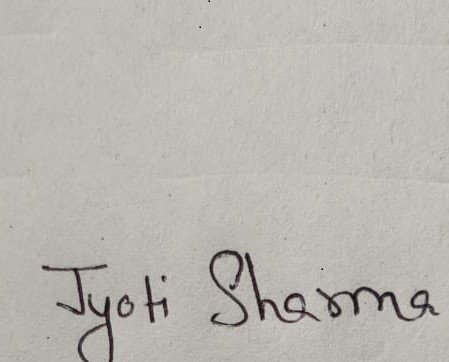 Jyoti Sharma